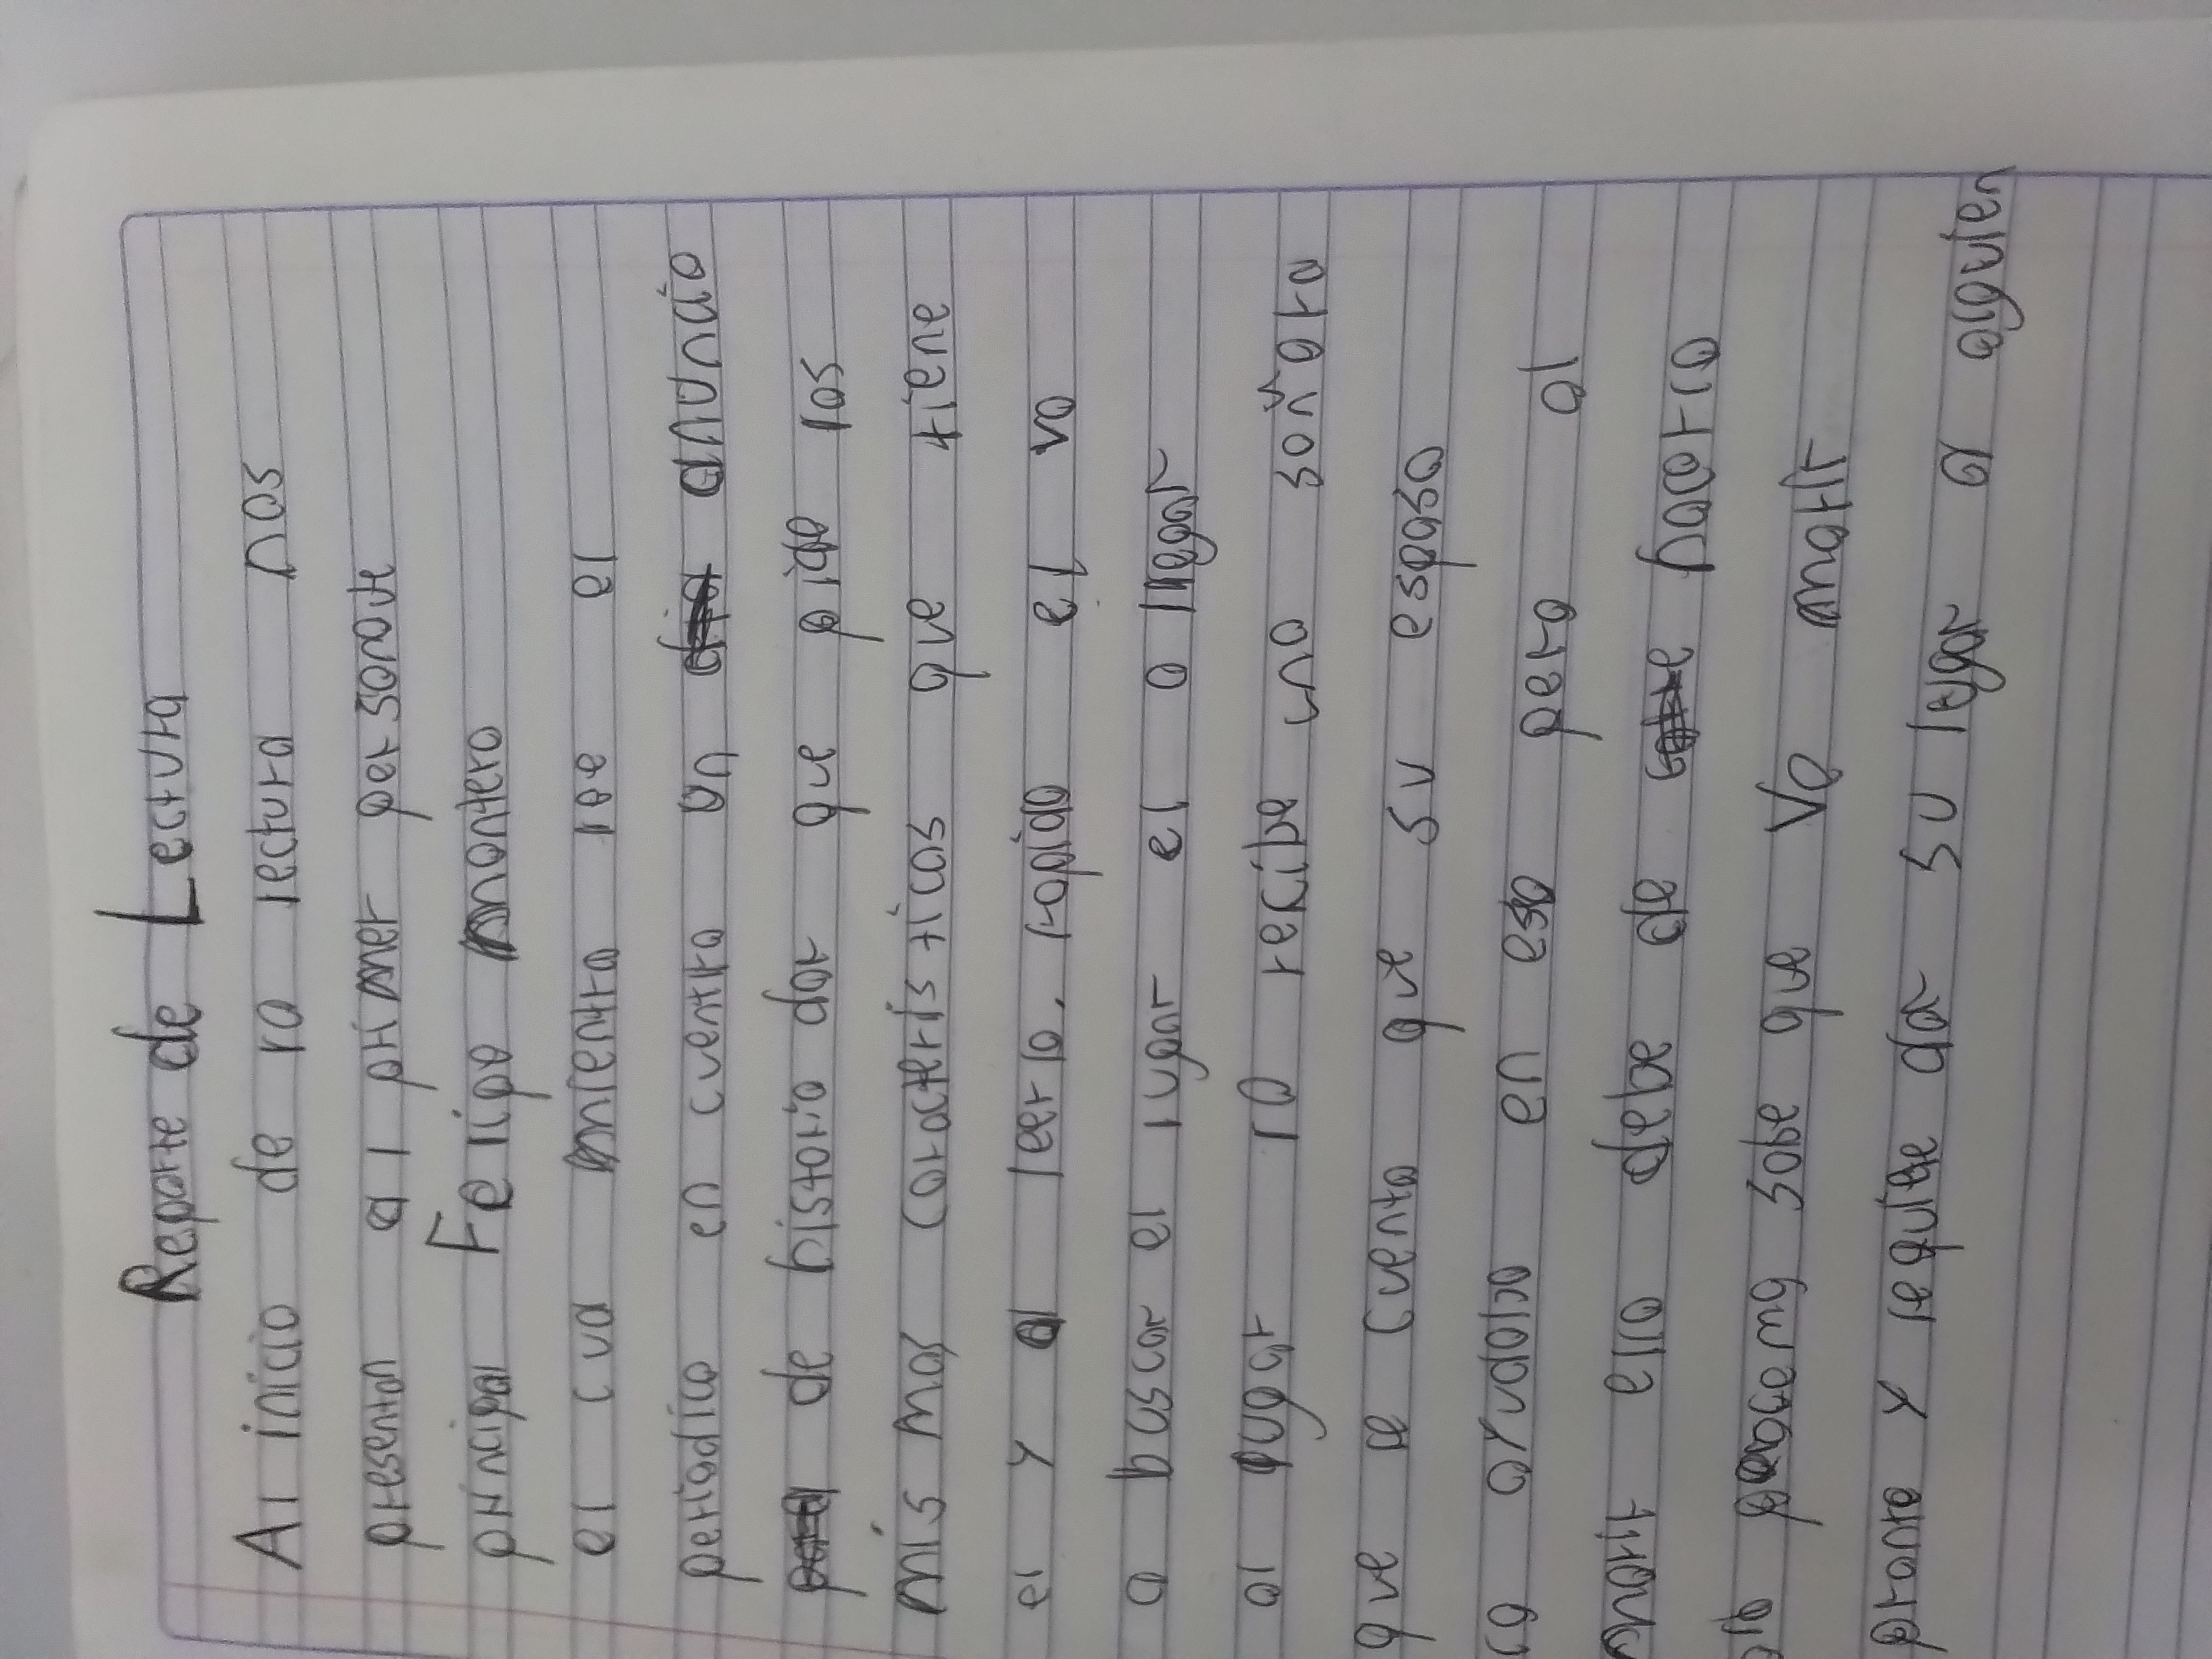 Reporte de Lectura
Al inicio de la lectura nos
presentan al primer personaje
principal Felipe montero
el cua mientra lee el
periodico en cuentra un anuncio
de historia dor que pide las
mis mas caracteris ticas que tiene
el y al leerlo, rapido el va
a buscar el lugar el a llegar
al lugar lo recibe una señora
que le cuenta que su esposo
ayudado en eso pero al
morir ella deja de de
sabe que va morir
y requiere dar su legar a alguien